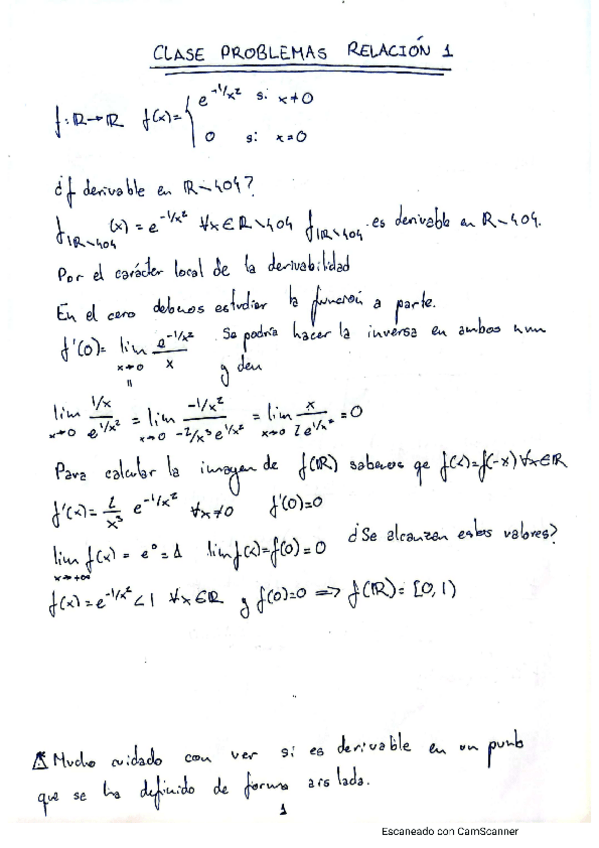 CLASE PROBLEMAS RELACIÓN 1
f: ℝ→ℝ f(x)= { e^{-1/x²} si x≠0
0 si x=0
¿f derivable en ℝ∖{0}?
f_{|ℝ∖{0}}(x) = e^{-1/x²} ∀x∈ℝ∖{0} f_{|ℝ∖{0}} es derivable en ℝ∖{0}.
Por el carácter local de la derivabilidad
En el cero debemos estudiar la función a parte.
f'(0)= lim_{x→0} e^{-1/x²}/x Se podría hacer la inversa en ambos num
y den
lim_{x→0} (1/x)/(e^{1/x²}) = lim_{x→0} (-1/x²)/(-2/x³ e^{1/x²}) = lim_{x→0} x/(2e^{1/x²}) = 0
Para calcular la imagen de f(ℝ) sabemos qe f(x)=f(-x) ∀x∈ℝ
f'(x)= 2/x³ e^{-1/x²} ∀x≠0 f'(0)=0
lim_{x→+∞} f(x) = e⁰ = 1 lim f(x)=f(0)=0 ¿Se alcanzan estos valores?
f(x)=e^{-1/x²}<1 ∀x∈ℝ y f(0)=0 ⟹ f(ℝ)=[0,1)
⚠ Mucho cuidado con ver si es derivable en un punto
que se ha definido de forma aislada.
1
Escaneado con CamScanner